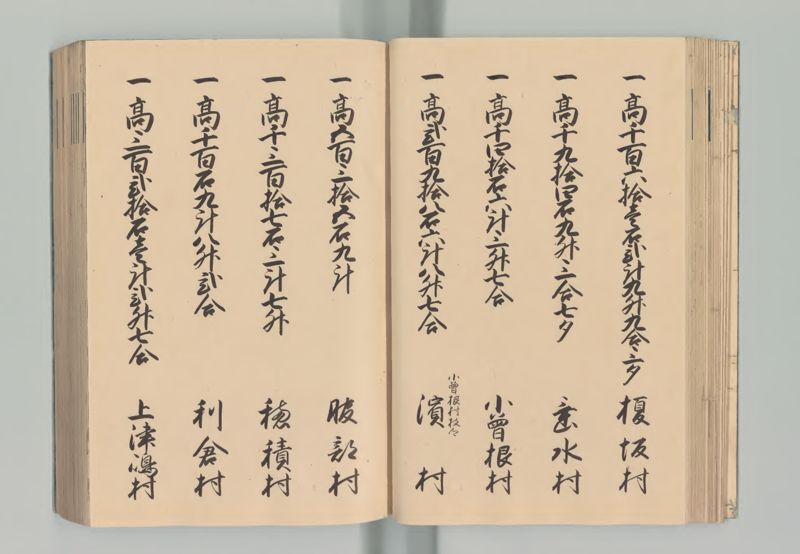 一高千百六拾壱石弐斗九升九合六夕 榎坂村
一高千九拾四石九升三合七夕 垂水村
一高千四拾石六斗三升七合 小曽根村
一高弐百九拾八石六斗八升七合 小曽根村枝郷 濱村
一高五百三拾五石九斗 服部村
一高千三百拾七石三斗七升 穂積村
一高千百石九斗八升弐合 利倉村
一高三百弐拾石壱斗弐升七合 上津嶋村